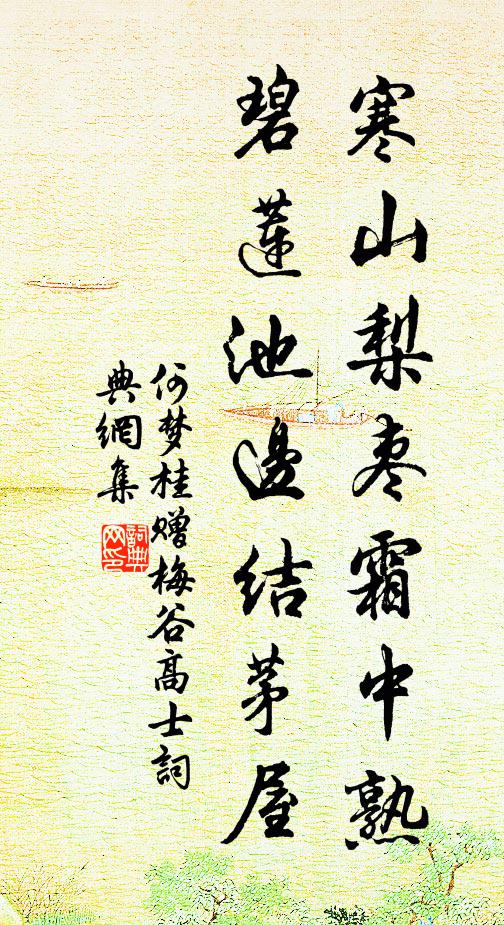 寒山梨枣霜中熟
碧莲池邊结茅屋
何梦桂赠梅谷高士詞
典網集
詞典
网印